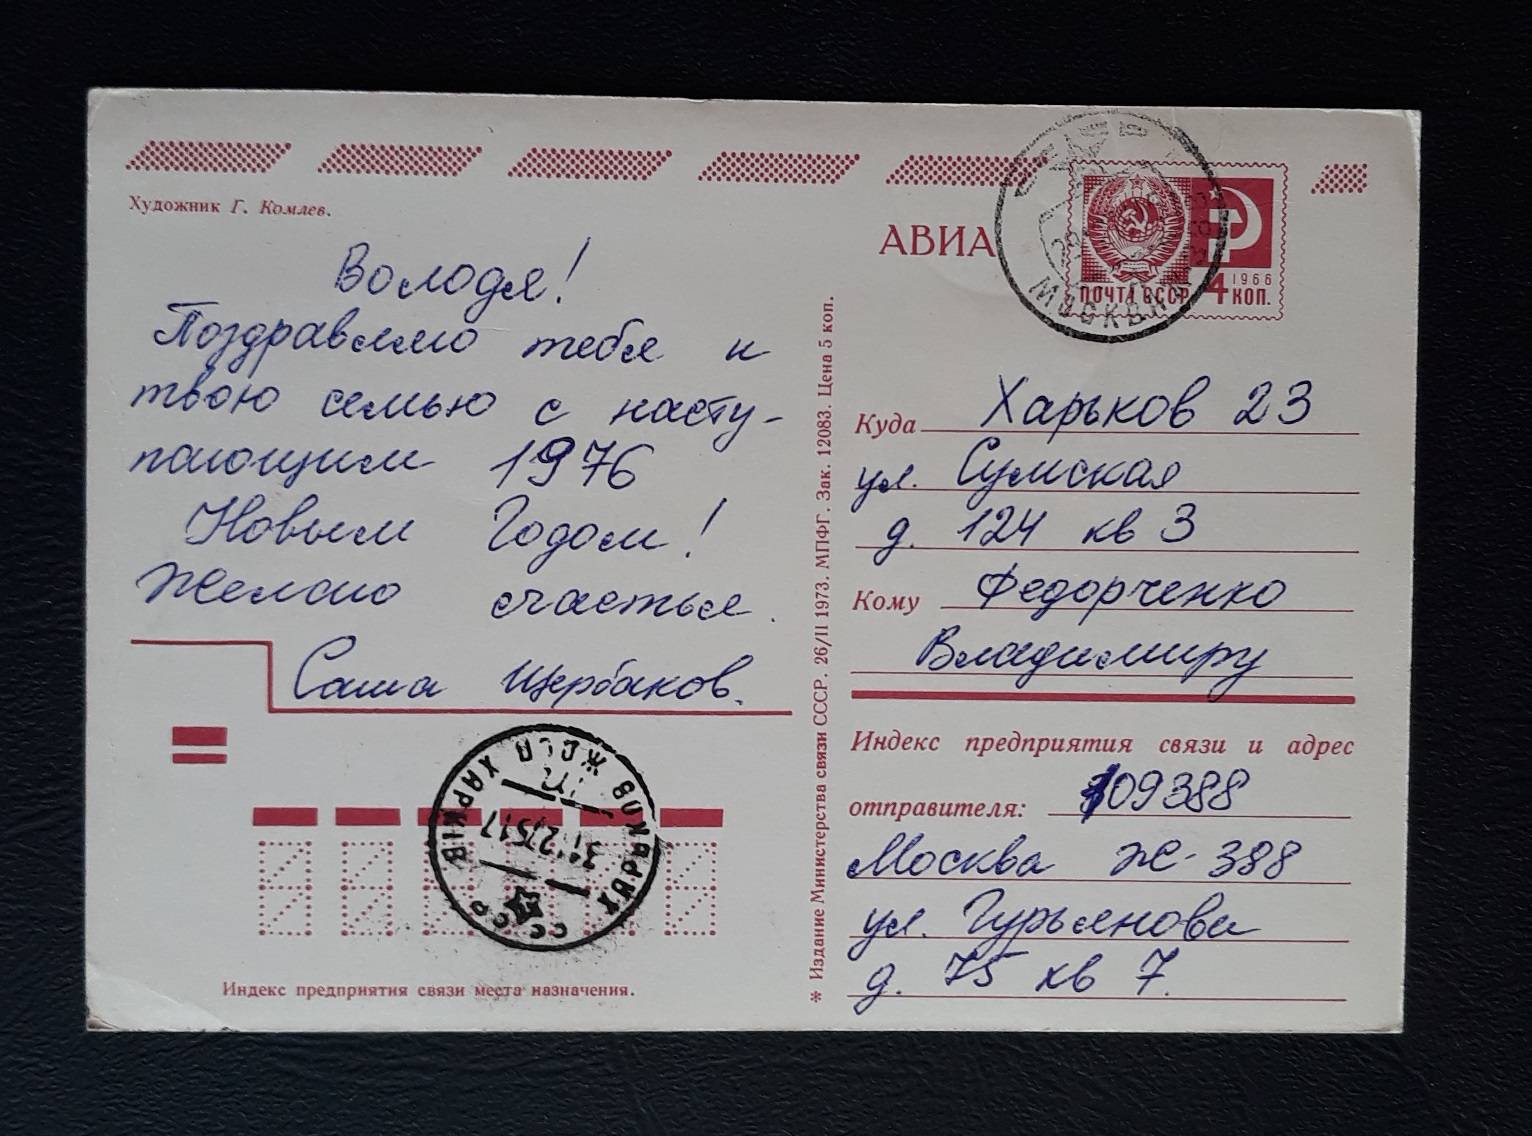 Художник Г. Комлев.
Володя!
Поздравляю тебя и
твою семью с насту-
пающим 1976
Новым Годом!
Желаю счастья.
Саша Щербаков.
СССР ХАРКІВ ХАРЬКОВ ЖДСП
31 12 75 17
Индекс предприятия связи места назначения.
* Издание Министерства связи СССР. 26/II 1973. МПФГ. Зак. 12083. Цена 5 коп.
АВИА
ПОЧТА СССР
1966
4 КОП.
МОСКВА
Куда Харьков 23
ул. Сумская
д. 124 кв 3
Кому Федорченко
Владимиру
Индекс предприятия связи и адрес
отправителя: 109388
Москва Ж-388
ул. Гурьянова
д. 75 кв 7.